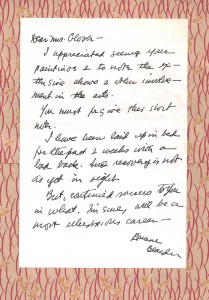 Dear Mrs. Glover –
I appreciated seeing your
paintings & to note the ex-
tensive shows & other involve-
ment in the arts.
You must forgive this short
note.
I have been laid up in bed
for the past 2 weeks with a
bad back. Sure recovery is not
as yet in sight.
But, continued success to you
in what, I'm sure, will be a
most illustrious career –
Romare
Bearden